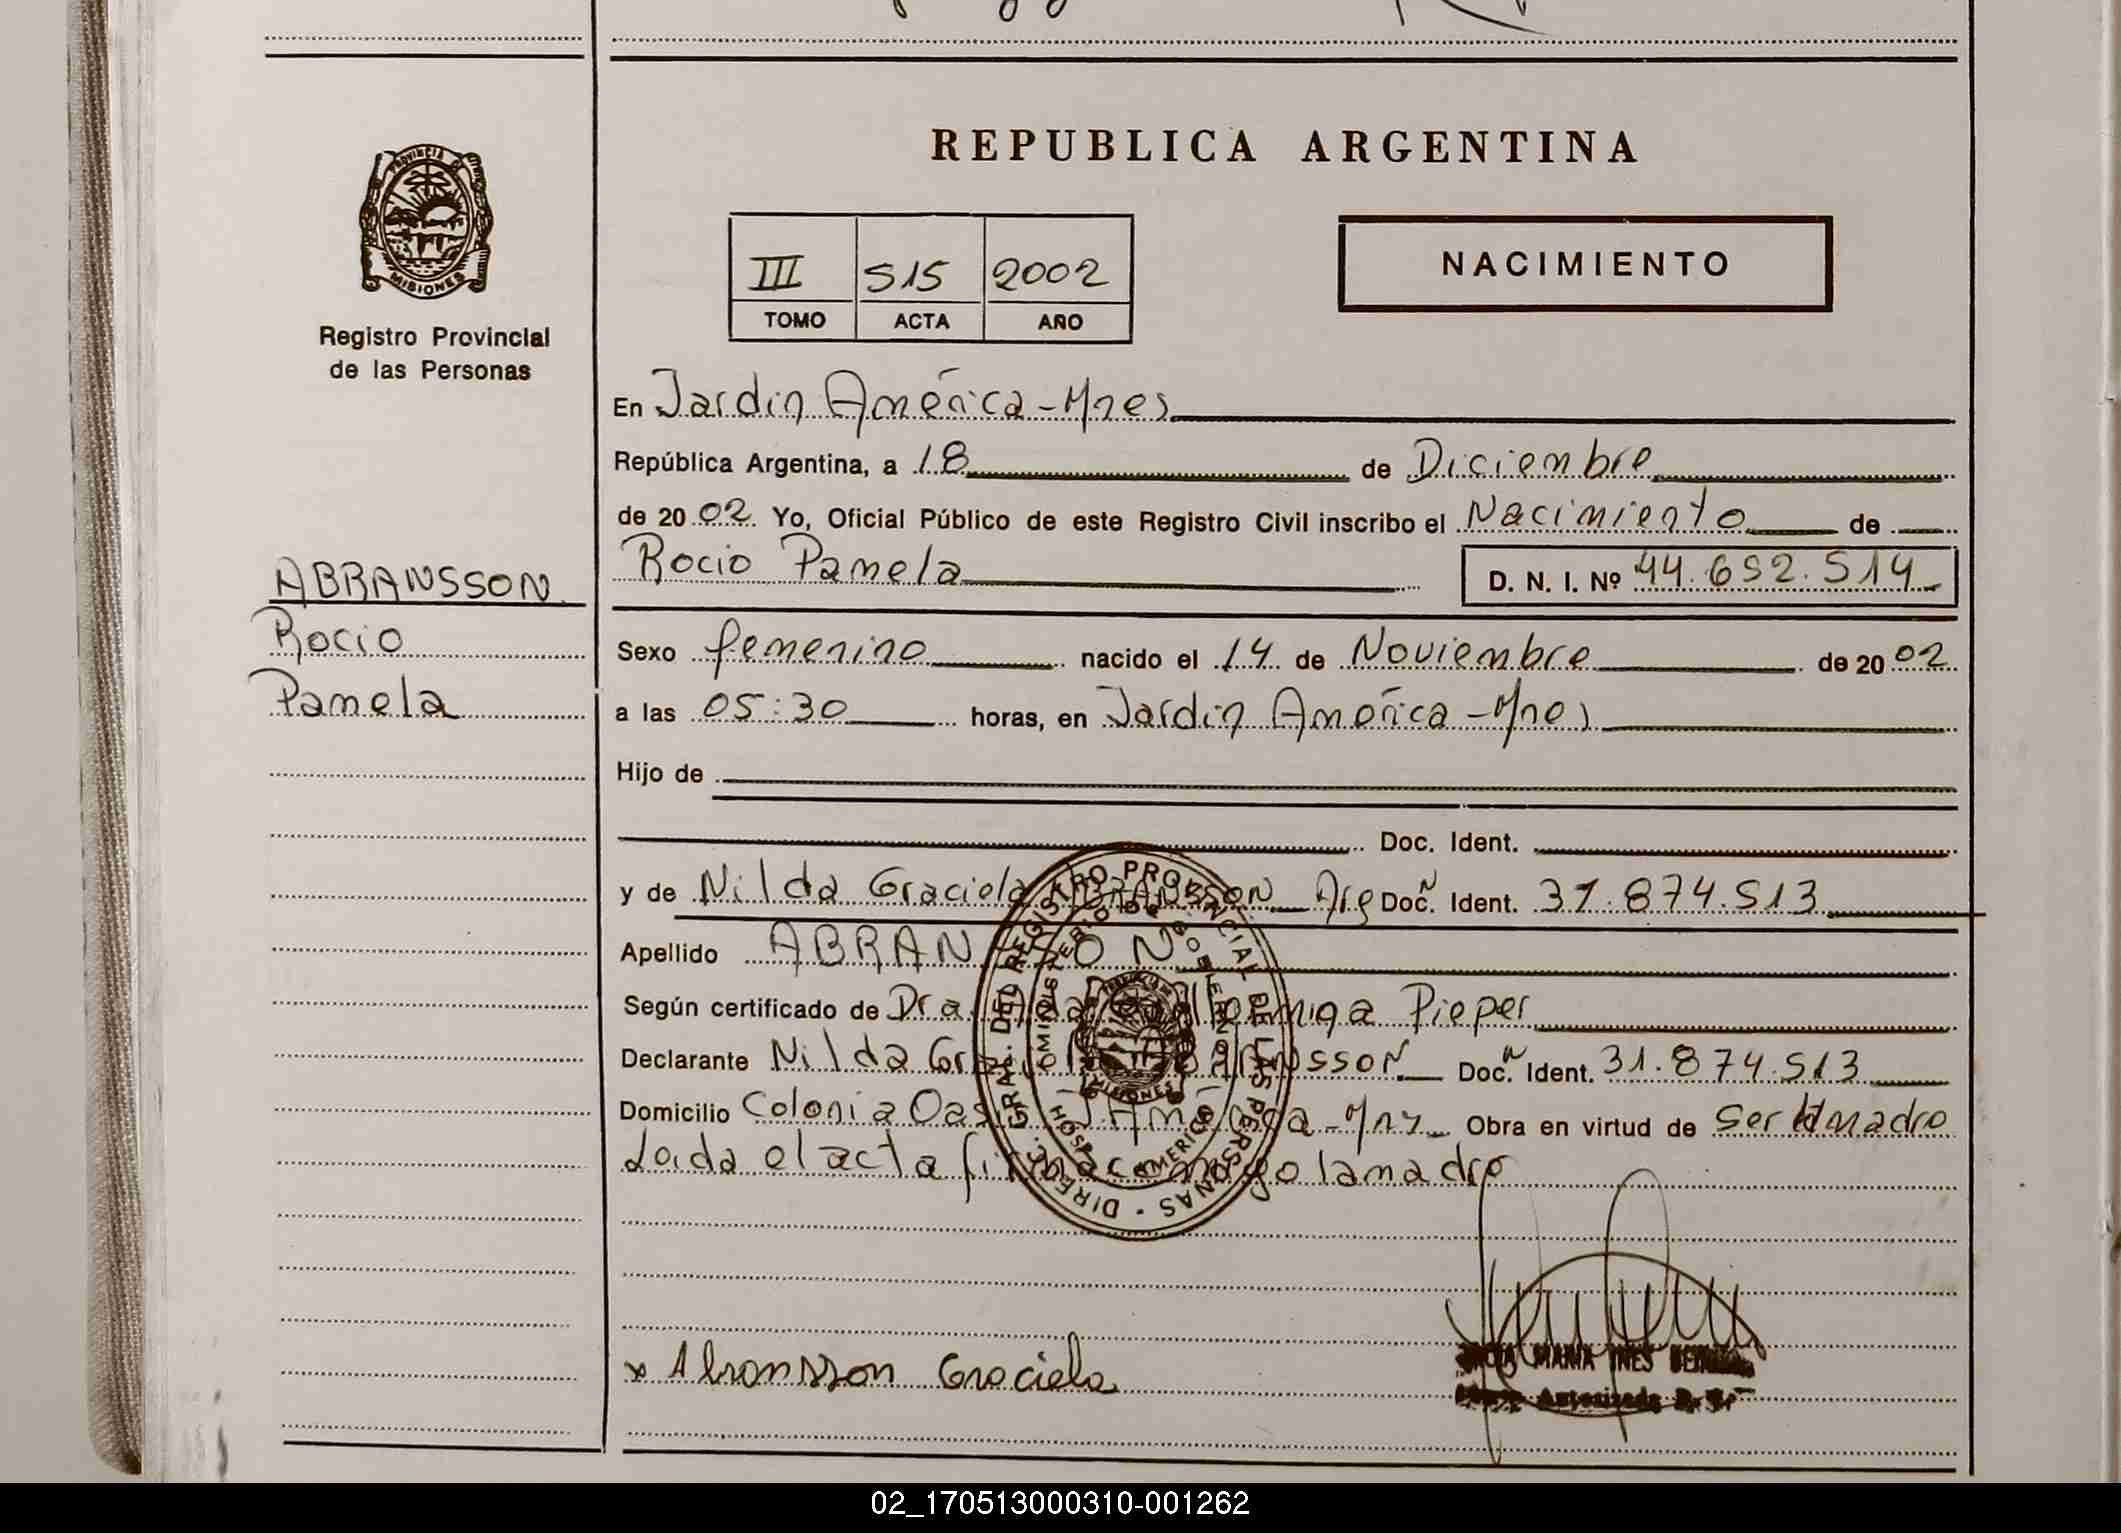 REPUBLICA ARGENTINA
PROVINCIA DE
MISIONES
Registro Provincial
de las Personas
III 515 2002
TOMO ACTA AÑO
NACIMIENTO
En Jardín América - Mnes
República Argentina, a 18 de Diciembre
de 2002 Yo, Oficial Público de este Registro Civil inscribo el Nacimiento de
Rocio Pamela D. N. I. Nº 44.652.514
ABRANSSON
Rocio
Pamela
Sexo femenino nacido el 14 de Noviembre de 2002
a las 05:30 horas, en Jardín América - Mnes
Hijo de
Doc. Ident.
y de Nilda Graciela ABRANSSON Arg Doc. Ident. 31.874.513
Apellido ABRANSSON
Según certificado de Dra Pieper
Declarante Nilda Graciela ABRANSSON Doc. Ident. 31.874.513
Domicilio Colonia Oasis J. América - Mnes Obra en virtud de ser la madre
Leida el acta firma conmigo la madre
DIREC. GRAL. DEL REGISTRO PROVINCIAL DE LAS PERSONAS
MINISTERIO DE GOBIERNO
HOSP. AMERICA
MISIONES
x Abransson Graciela
MARIA INES
Autorizada
02_170513000310-001262